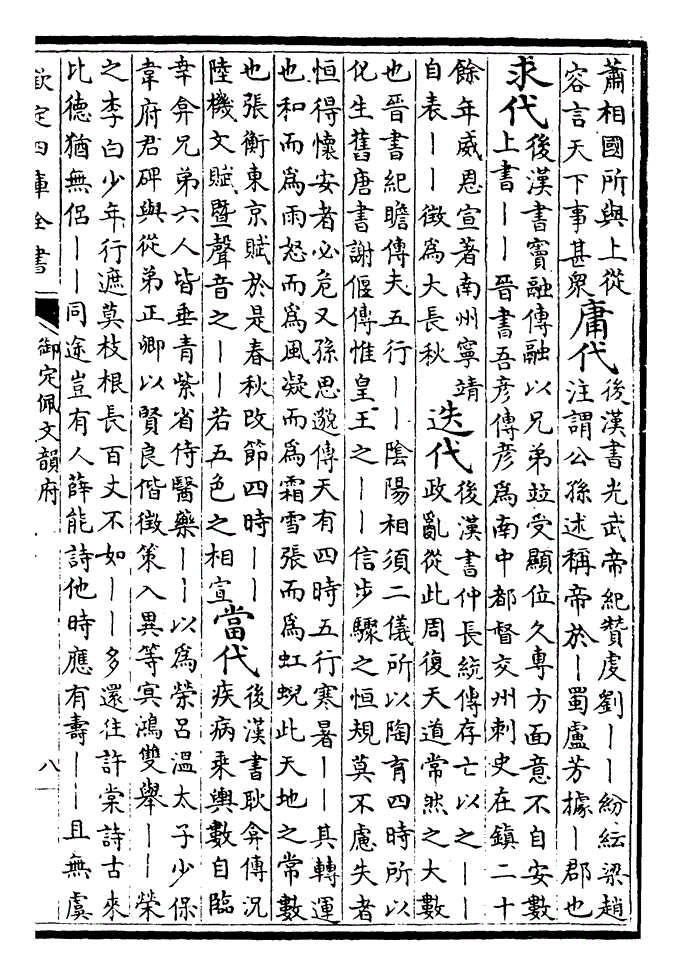 蕭相國所與上從
容言天下事甚衆
庸代
後漢書光武帝紀贊虔劉||紛紜梁趙
注謂公孫述稱帝於|蜀盧芳據|郡也
求代
後漢書竇融傳融以兄弟竝受顯位久專方面意不自安數
上書||晉書吾彦傳彦為南中都督交州刺史在鎮二十
餘年威恩宣著南州寧靖
自表||徵為大長秋
迭代
後漢書仲長統傳存亡以之||
政亂從此周復天道常然之大數
也晉書紀瞻傳夫五行||陰陽相須二儀所以陶育四時所以
化生舊唐書謝偃傳惟皇王之||信步驟之恒規莫不慮失者
恒得懷安者必危又孫思邈傳天有四時五行寒暑||其轉運
也和而為雨怒而為風凝而為霜雪張而為虹蜺此天地之常數
也張衡東京賦於是春秋改節四時||
陸機文賦暨聲音之||若五色之相宣
當代
後漢書耿弇傳況
疾病乘輿數自臨
幸弇兄弟六人皆垂青紫省侍醫藥||以為榮呂溫太子少保
韋府君碑與從弟正卿以賢良偕徵策入異等㝠鴻雙舉||榮
之李白少年行遮莫枝根長百丈不如||多還往許棠詩古來
比德猶無侶||同途豈有人薛能詩他時應有壽||且無虞
欽定四庫全書
御定佩文韻府
八